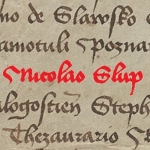 no de Slawsko
amotuli Spoznan
Nicolao Slup
alogostien Steph
Thezaurario S